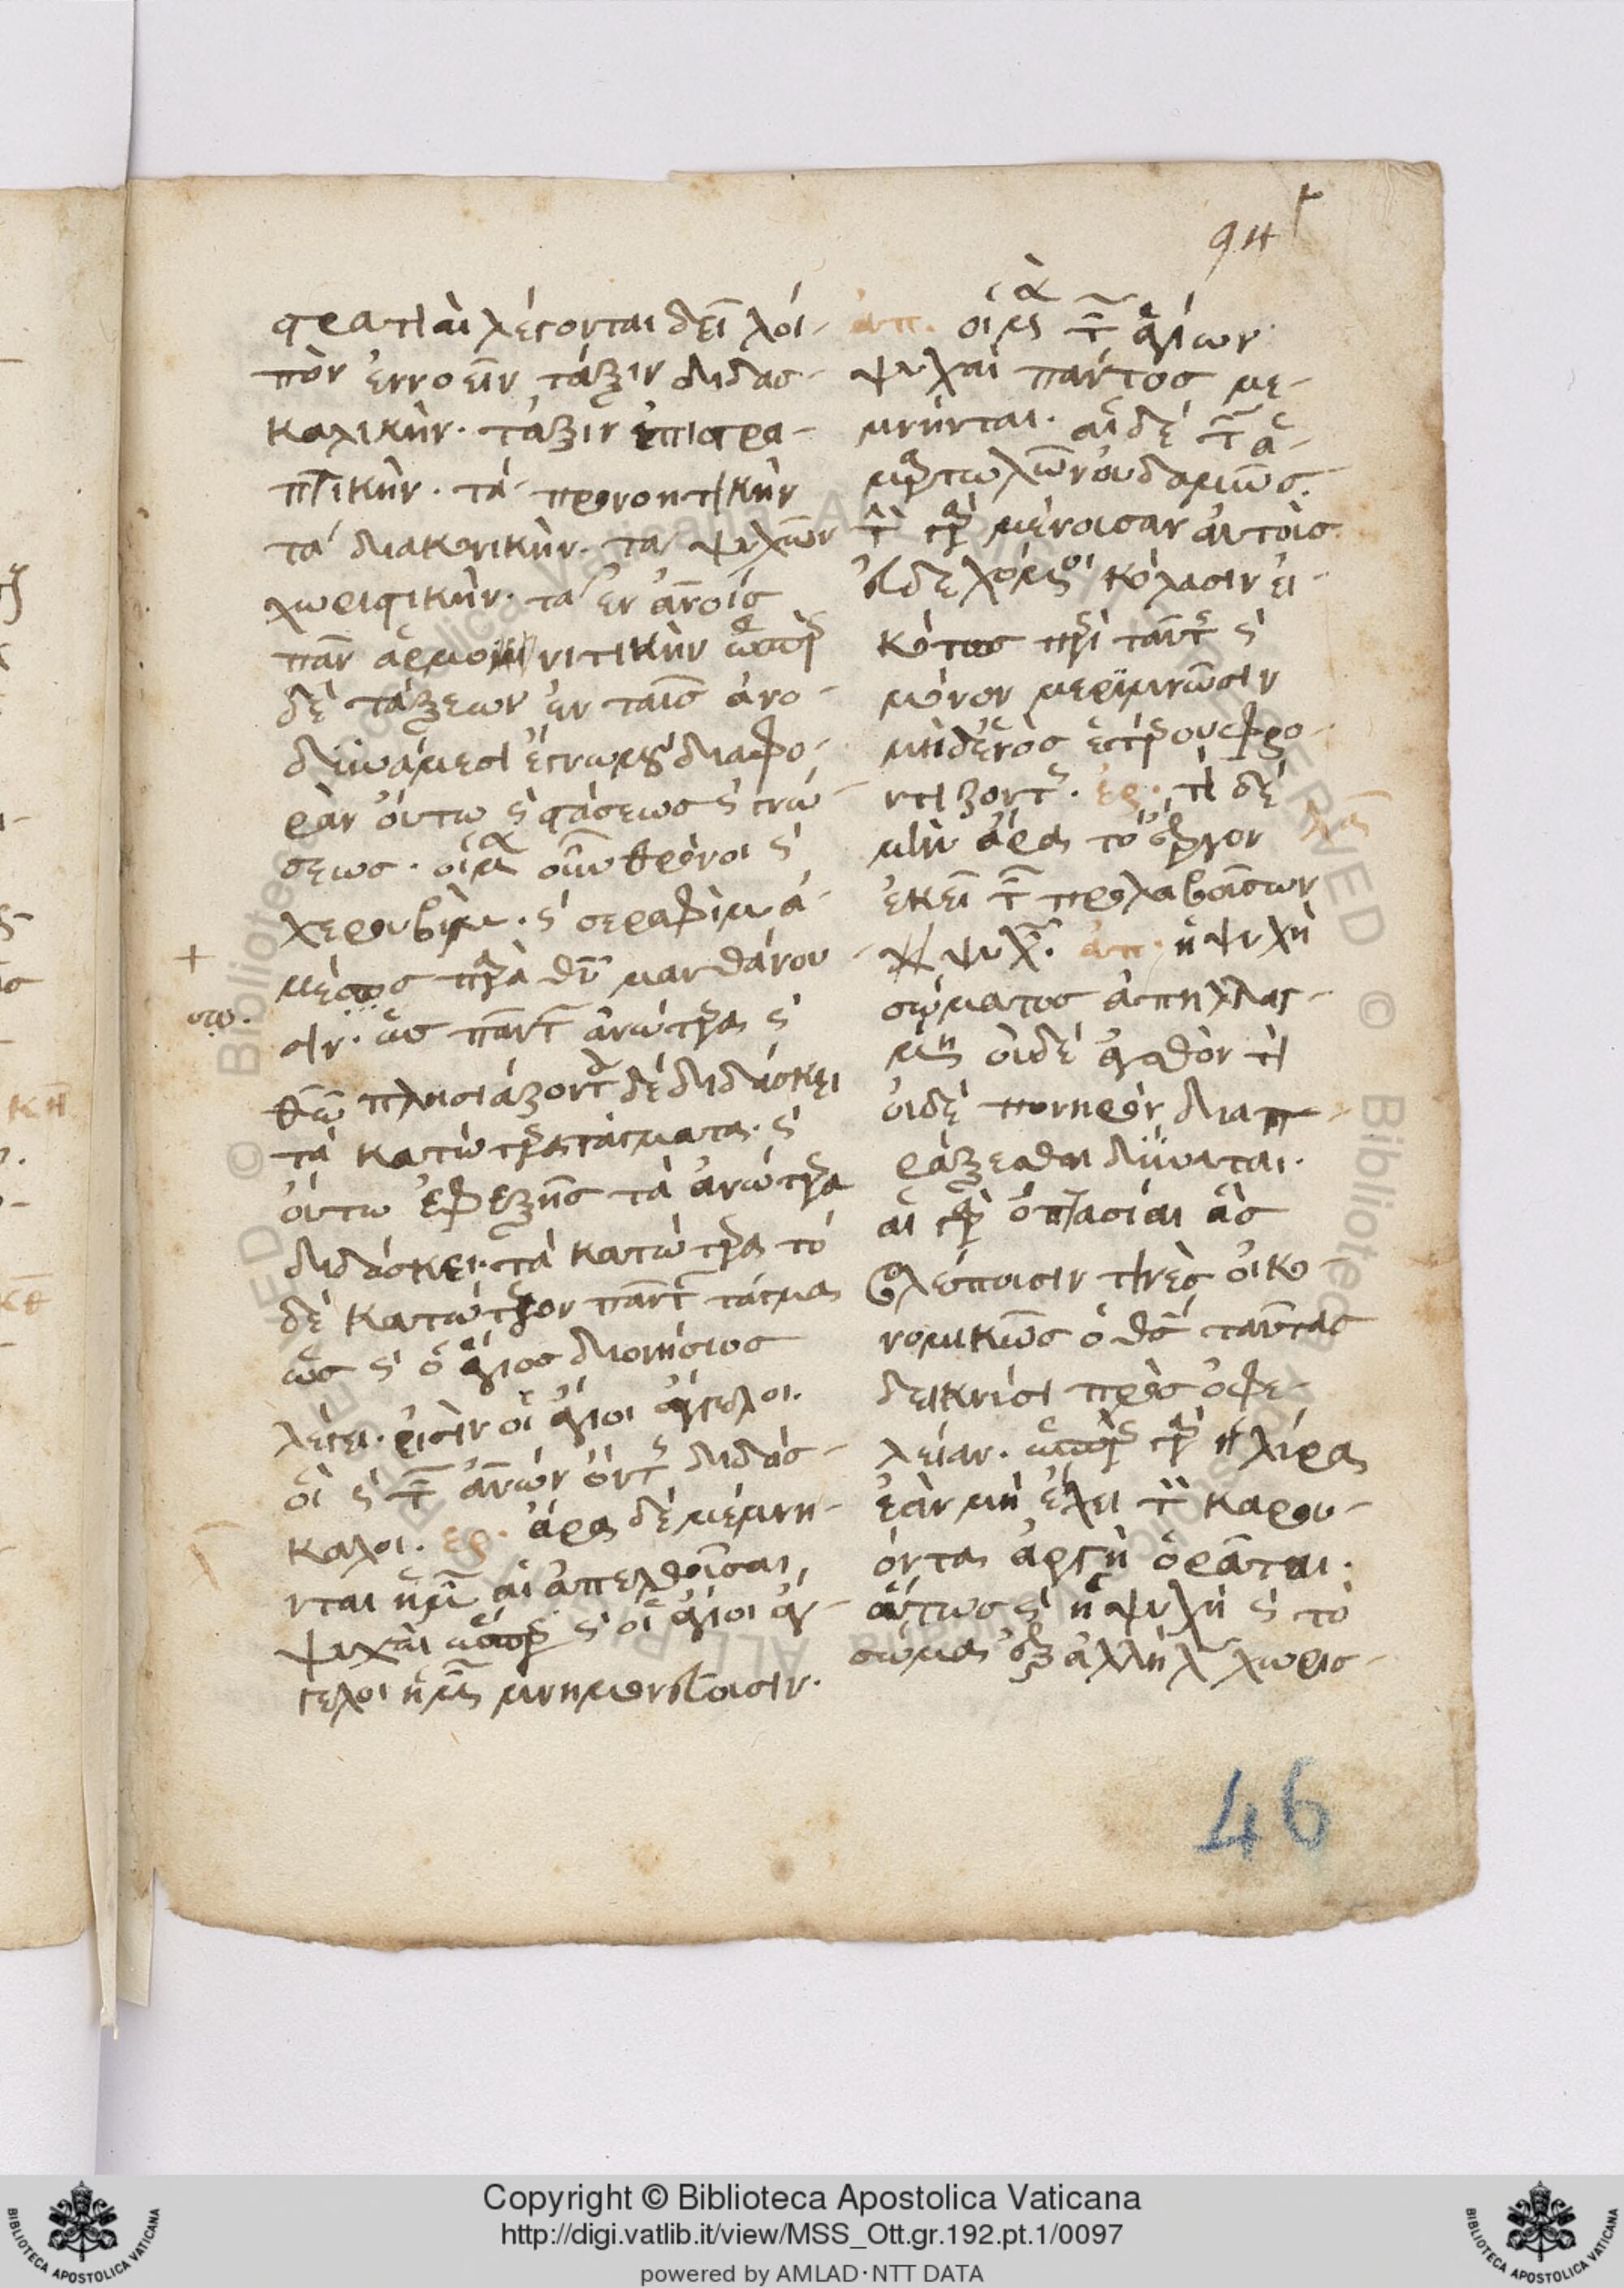 ϟη
στρατιαὶ λέγονται δεῖ λοι-
πὸν ἐννοεῖν τάξιν διδασ-
καλικήν. τάξιν ἐπιστρα-
πτικήν. τά- προνοητικὴν
τά διακονικήν. τά ψυχῶν
χωριστικήν. τά ἐν ἀνοῖς
παν ἁρμο νιτικὴν ὥσπερ
δὲ τάξεων ἐν ταῖς ἄνω
δυνάμεσι ἔγνωμεν διαφο-
ρὰν οὕτω καὶ στάσεως καὶ γνώ-
σεως. οἷα οὖν θρόνοι καὶ
χερουβὶμ. καὶ σεραφὶμ ἀ-
μέσως παρὰ θυ μανθάνου
σιν. ὡς παντ ἀνώτερα καὶ
θῶ πλησιάζοντα δὲ διδάσκει
τὰ κατώτερα τάγματα. καὶ
οὕτω ἐφεξῆς τὰ ἀνώτερα
διδάσκει. τὰ κατώτερα τὸ
δὲ κατώτερον παντ τάγμα
ὡς καὶ ὁ ἅγιος διονύσιος
λέγει. εἰσὶν οἱ ἅγιοι ἄγγελοι.
οἱ καὶ τῶν ἀνων ὄντες διδάσ-
καλοι. ερ. ἆρα δὲ μέμνη-
νται ἡμῶν αἱ ἀπελθοῦσαι
ψυχαὶ ὥσπερ καὶ οἱ ἅγιοι ἄγ-
γελοι ἡμᾶς μνημονεύουσιν.
απ. αἱ μὲν τῶν ἁγίων
ψυχαὶ πάντως μέ-
μνηνται. αἱ δὲ τῶν ἁ-
μαρτωλῶν οὐδαμῶς.
τὴν γὰρ μένουσαν αὐτοῖς
ἐκδεχόμενοι κόλασιν εἰ-
κότως περὶ ταύτης καὶ
μόνον μεριμνῶσιν
μηδενὸς ἑτέρου φρο-
ντίζοντες. ερ. τί δέ
μιν ἄρα τὸ ἔργον
ἐκεῖ τῶν προλαβουσῶν
ψυχῶν. απ. ἡ ψυχὴ
σώματος ἀπηλλαγ-
μένη οὐδὲ ἀγαθόν τι
οὐδὲ πονηρὸν διαπ-
ράξεσθαι δύναται.
αἱ γὰρ ὀπτασίαι ἃς
βλέπουσιν τινὲς οἰκο
νομικῶς ὁ θς ταύτας
δείκνυσι πρὸς ὠφέ-
λειαν. ὥσπερ γὰρ ἡ λύρα
ἐὰν μὴ ἔχει τὸν κρου-
όντα ἀργὴ ὁρᾶται.
οὕτως καὶ ἡ ψυχὴ καὶ τὸ
σῶμα ἐξ ἀλλήλων χωρισ-
46
Copyright © Biblioteca Apostolica Vaticana
http://digi.vatlib.it/view/MSS_Ott.gr.192.pt.1/0097
powered by AMLAD·NTT DATA